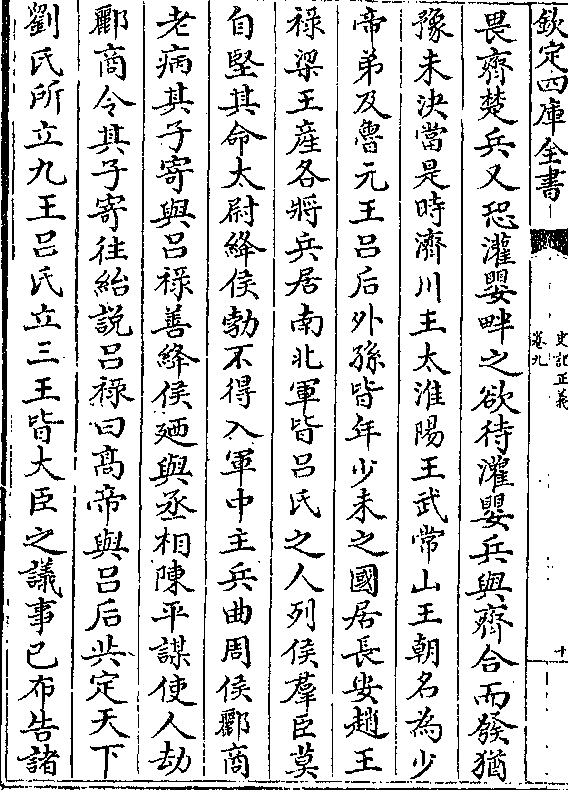 欽定四庫全書
史記正義
卷九
十
畏齊楚兵又恐灌嬰畔之欲待灌嬰兵與齊合而發猶
豫未決當是時濟川王太淮陽王武常山王朝名為少
帝弟及魯元王呂后外孫皆年少未之國居長安趙王
祿梁王產各將兵居南北軍皆呂氏之人列侯羣臣莫
自堅其命太尉絳侯勃不得入軍中主兵曲周侯酈商
老病其子寄與呂祿善絳侯廼與丞相陳平謀使人劫
酈商令其子寄往紿說呂祿曰髙帝與呂后共定天下
劉氏所立九王呂氏立三王皆大臣之議事已布告諸